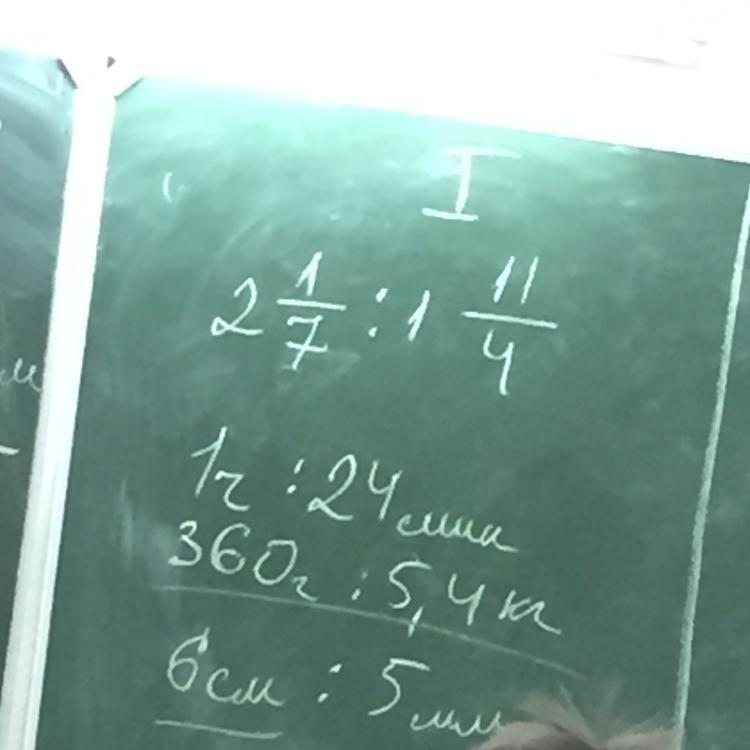 I
2 1/7 : 1 11/4
1ч : 24 мин
360г : 5,4 кг
6см : 5мм